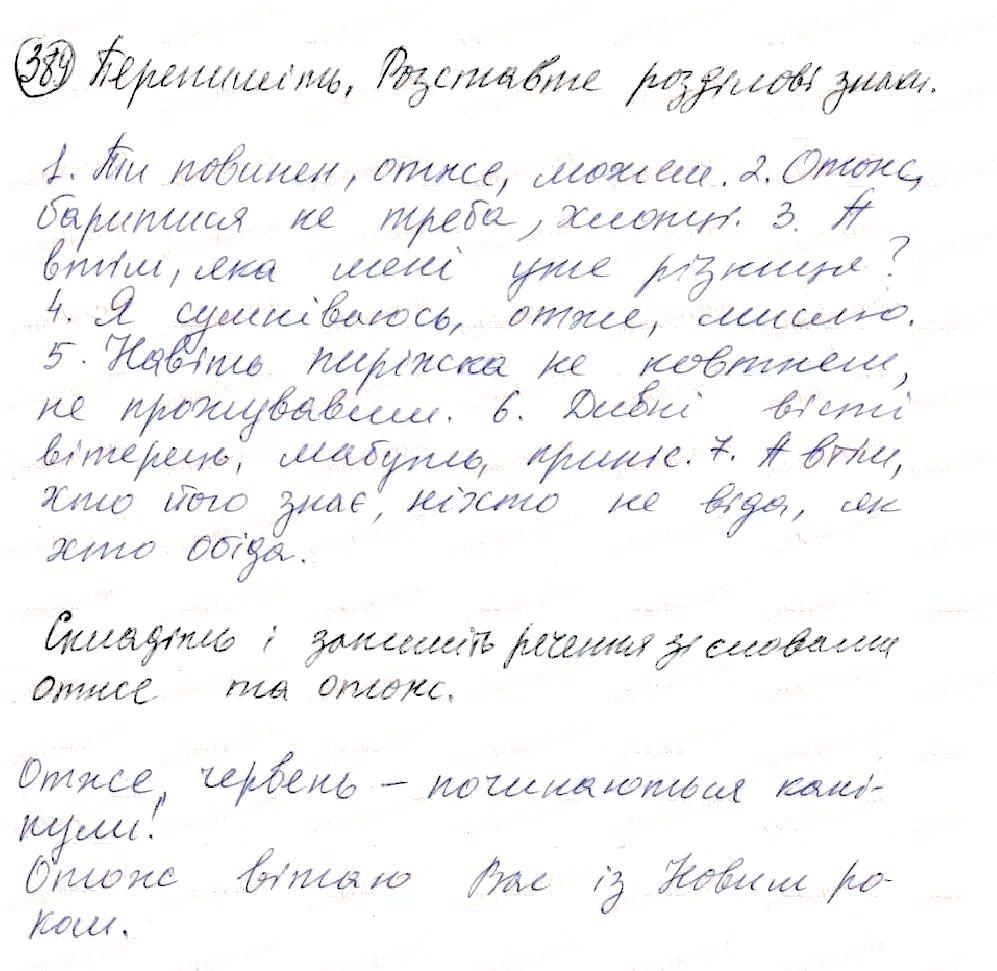 389 Перепишіть. Розставте розділові знаки.
1. Ти повинен, отже, можеш. 2. Отож,
баритися не треба, хлопці. 3. А
втім, яка мені уже різниця?
4. Я сумніваюсь, отже, мислю.
5. Навіть пиріжска не ковтнеш,
не прожувавши. 6. Дивні вісті
вітерець, мабуть, приніс. 7. А втім,
хто його знає, ніхто не віда, як
хто обіда.
Складіть і запишіть речення зі словами
отже та отож.
Отже, червень – починаються кані-
кули!
Отож вітаю Вас із Новим ро-
ком.